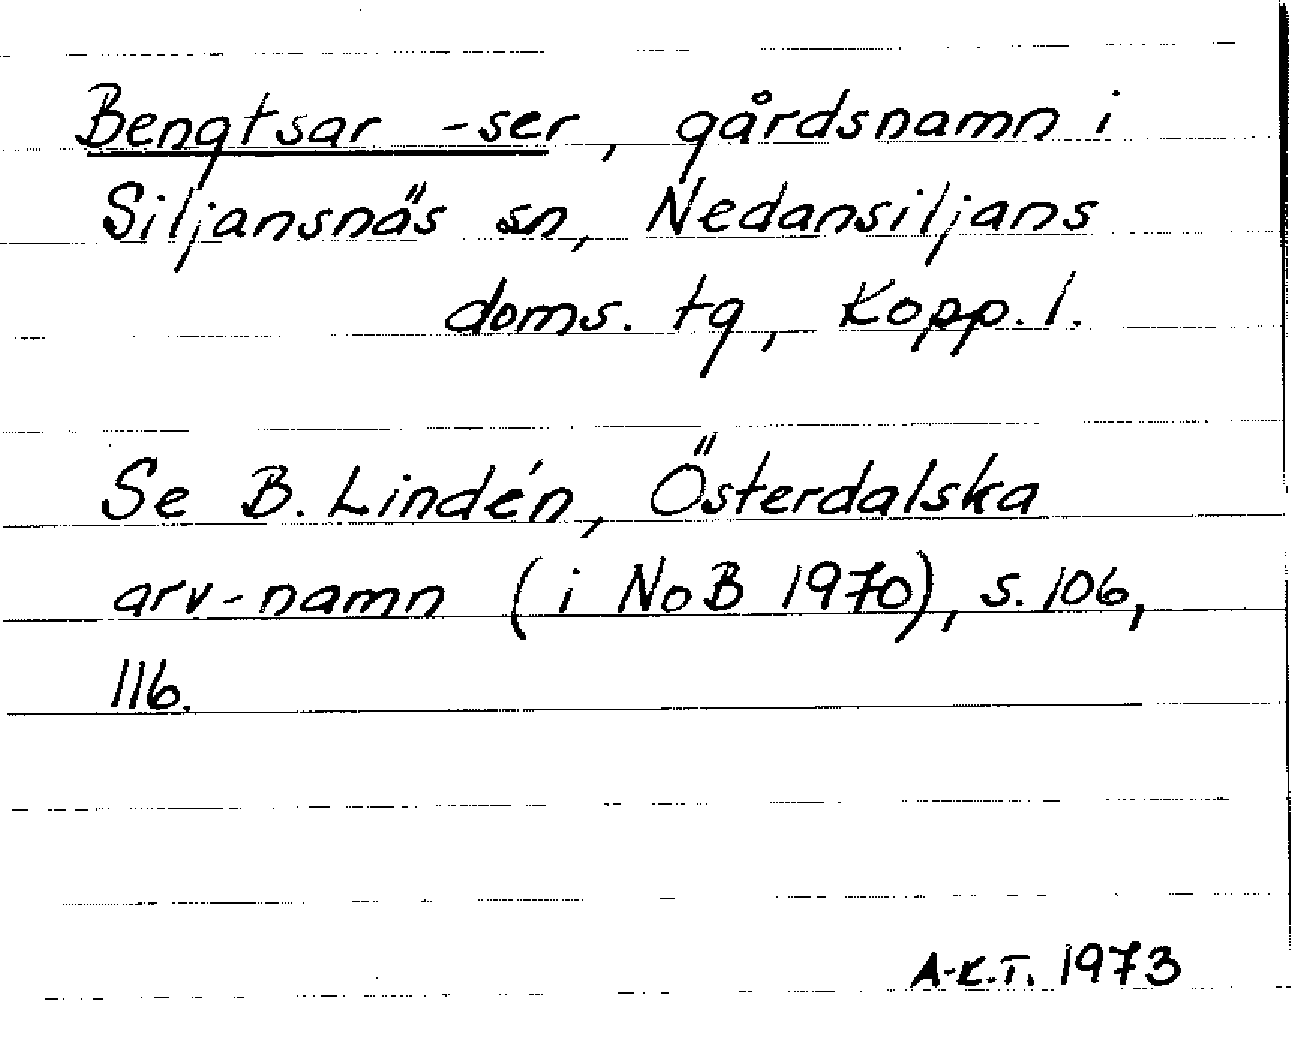 Bengtsar -ser, gårdsnamn i
Siljansnäs sn, Nedansiljans
doms. tg, Kopp. l.
Se B. Lindén, Österdalska
arv-namn (i NoB 1970), s. 106,
116.
A-K.T. 1973